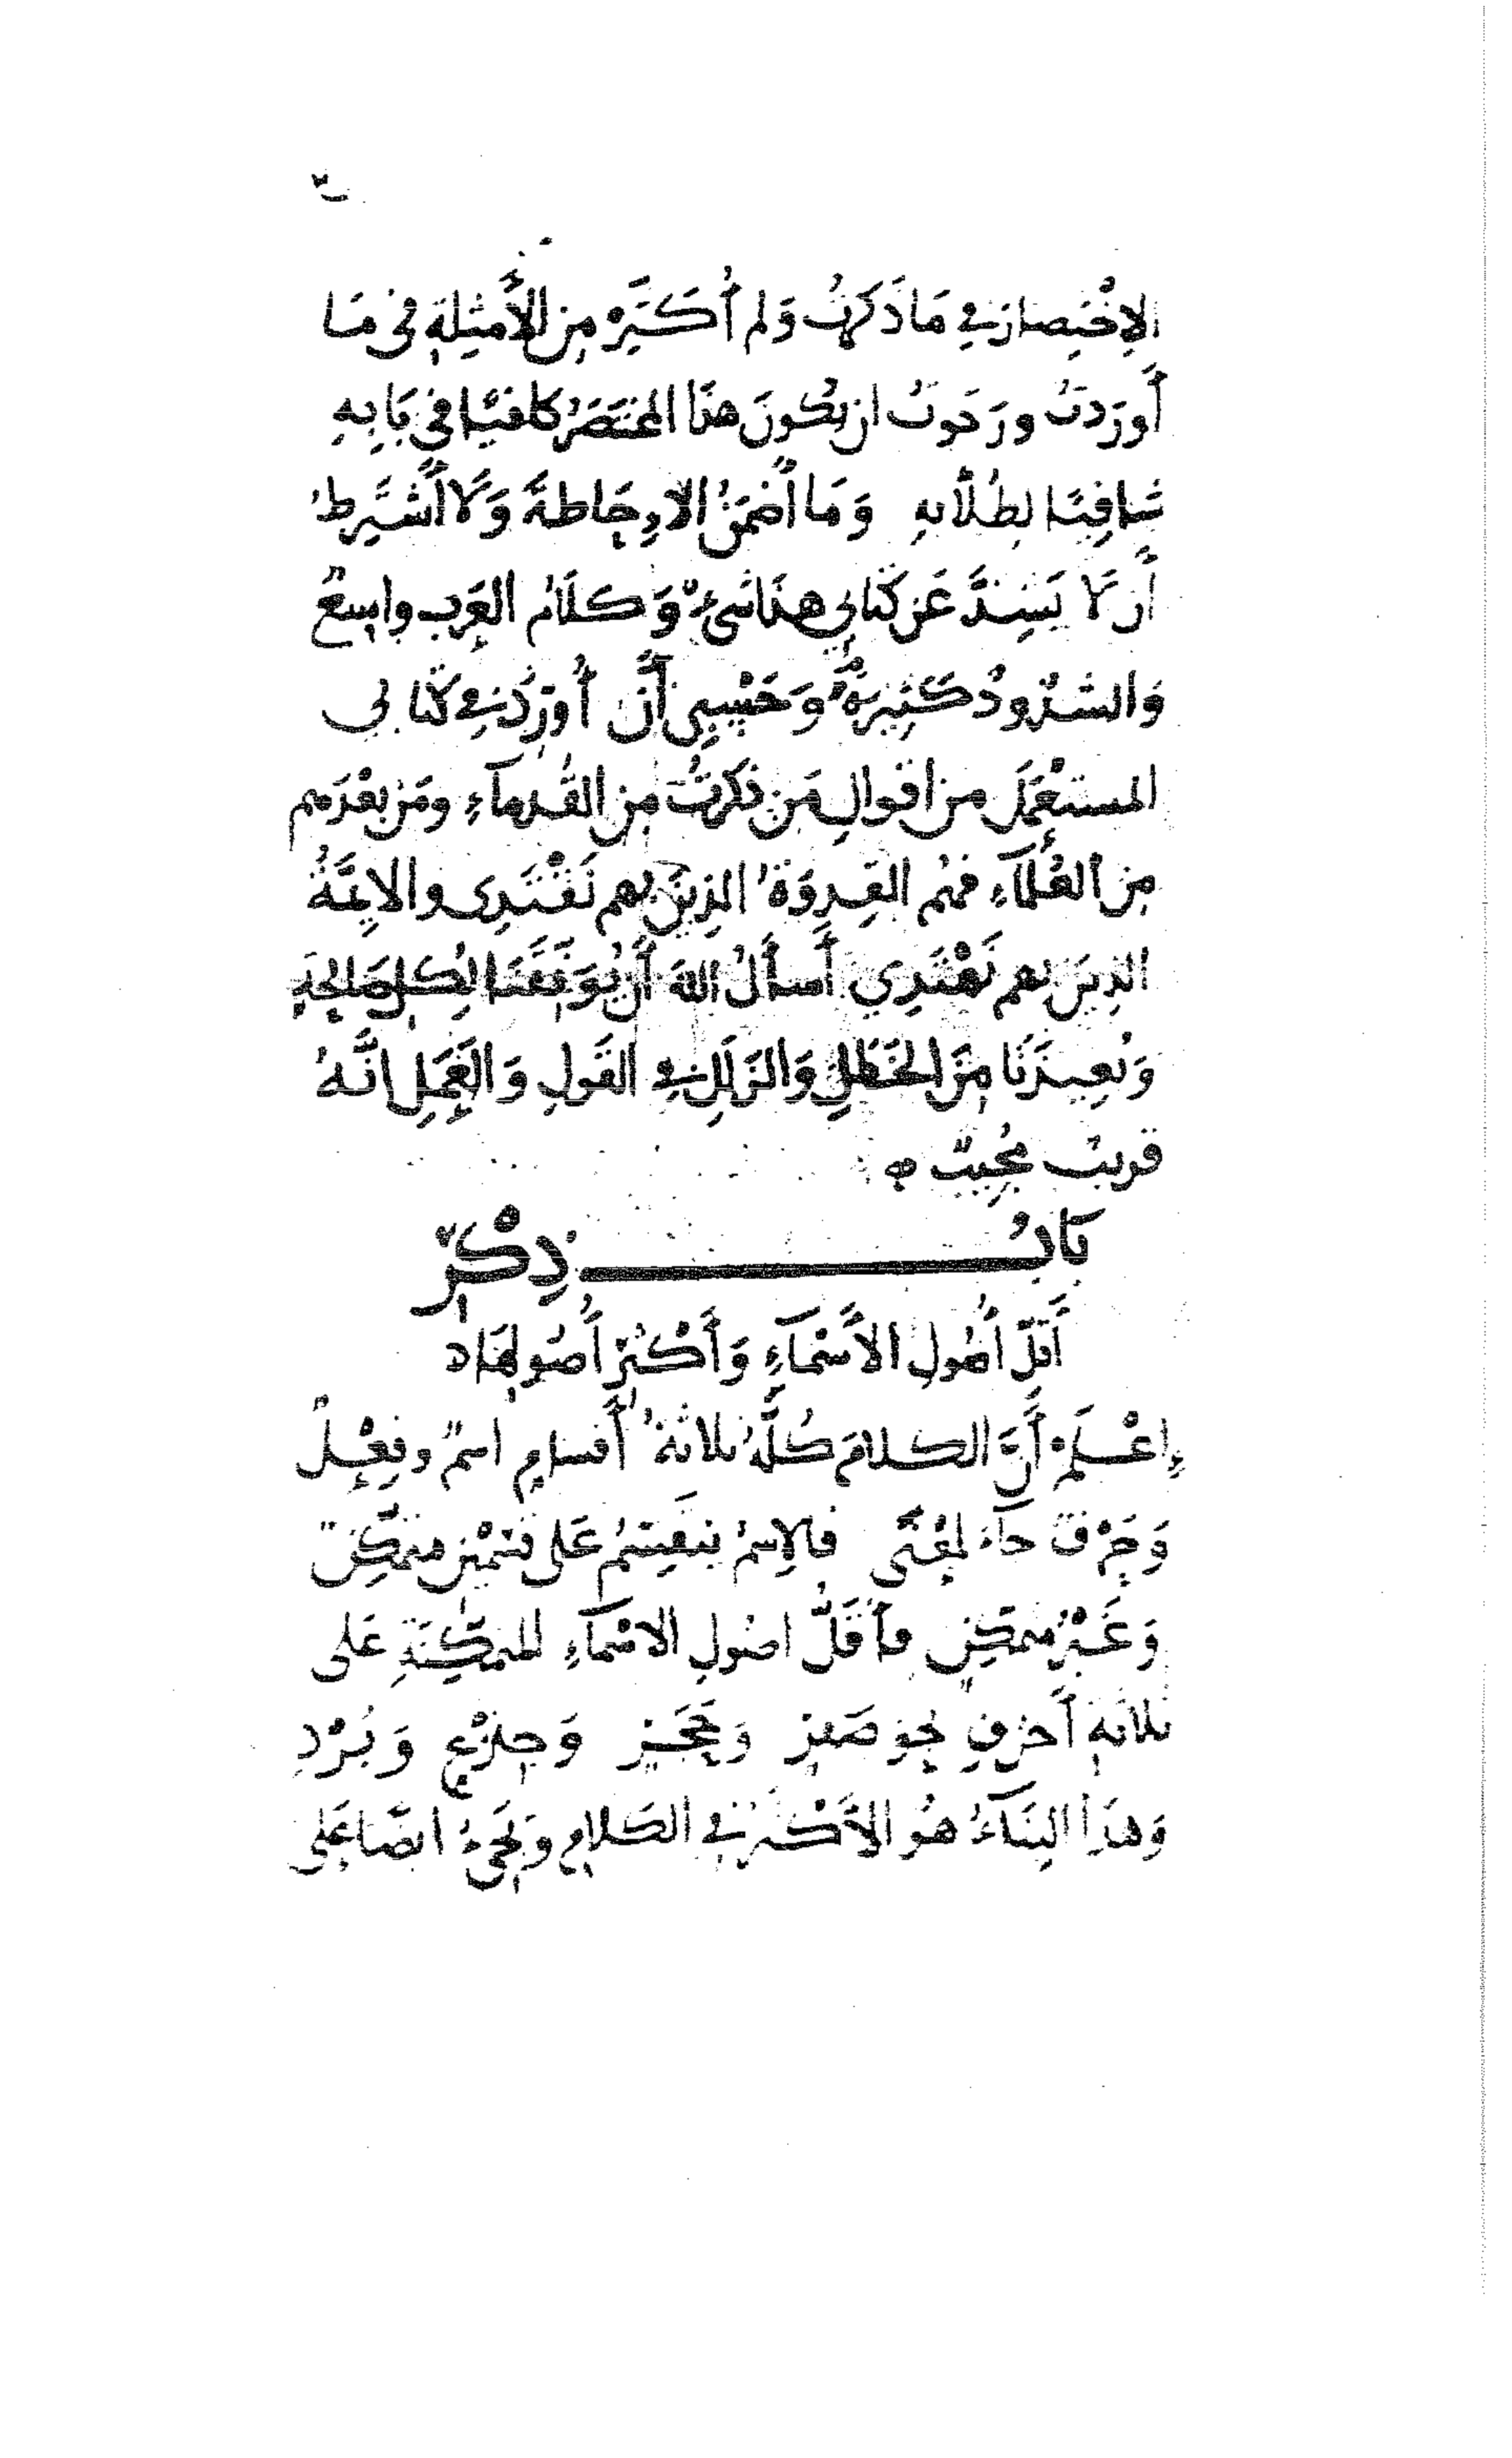 الاِخْتِصارَ فِي مَا ذَكَرتُ وَلم أُكَثِّرْ مِن الأَمثِلةِ فى مَا
أَورَدتُ ورَجَوتُ ان يكُونَ هذَا المختَصَرُ كافيًا في بَابِهِ
شَافِيًا لِطُلَّابِهِ وَمَا أَضمَنُ الاِحَاطةَ وَلَا أَشتَرِطُ
أَن لَا يَشِذَّ عَن كتابي هذا شىءٌ وَكلَامُ العَرَبِ واسِعٌ
وَالشذُوذُ كَثِيرَةٌ وَحَسْبِي أَنَّ أُورِدَ في كتابى
المستَعْمَلَ من اقوالِ مَن ذكرتُ مِن القُدَمآءِ ومَن بعْدَهم
مِن العُلمآءِ فهُم القِدوَةُ الذِينَ بهم نَقْتَدِى والايِمَّةُ
الذِينَ بهم نَهْتَدِي أَسأَلُ اللهَ أَن يُوَفِّقَنَا لِكلِ صَالِحَةٍ
وَيُعِيذَنَا مِنَ الخَطَلِ وَالزَلَلِ في القَولِ وَالعَمَلِ انَّهُ
قريبٌ مُجِيبٌ ه
بَابُ ذِكْرِ
أَقلِّ أُصُولِ الأَسْمآءِ وَأَكْثرِ أُصُولِهَا ه
إِعْلَمْ أَنَّ الكلامَ كُلَّهُ ثلاثةُ أَقسامٍ اسمٌ وفِعْلٌ
وَحَرْفٌ جآءَ لمَعْنًى فالاِسمُ ينقَسِمُ عَلى قسْمَيْن متمَكِّنٍ
وَغَيْرِ متمَكِّنٍ فأَقَلُّ اصُولِ الاسْمآءِ المتمَكِّنَةِ عَلى
ثلاثَةِ أَحْرفٍ نحْو صَقرٍ وَحَجَرٍ وَجِذْعٍ وَبُرْدٍ
وَهذَا البِنَآءُ هُو الأَكْثَرُ في الكَلامِ وَيَجىءُ ايضًا عَلى